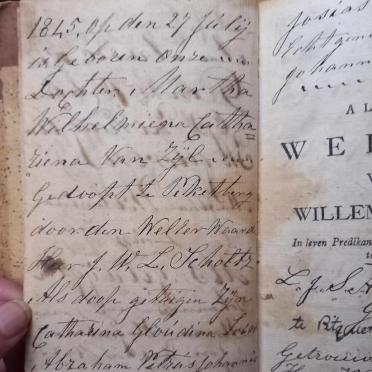 1845, op den 27 Julij
is Gebooren onze
Dochter, Martha
Wilhelmiena Catha=
riena Van Zijl
Gedoopt te Piketberg
door den Welkerwaard
Heer J. W. L. Scholtz
Als doop getuigen Zijn
Catharina Gloudina
Abraham Petrus Johannis
Josias
Echtgen
Johann
A L
W E
V
WILLEM
In leven Predikan
L. J. S.
te
Getrouw